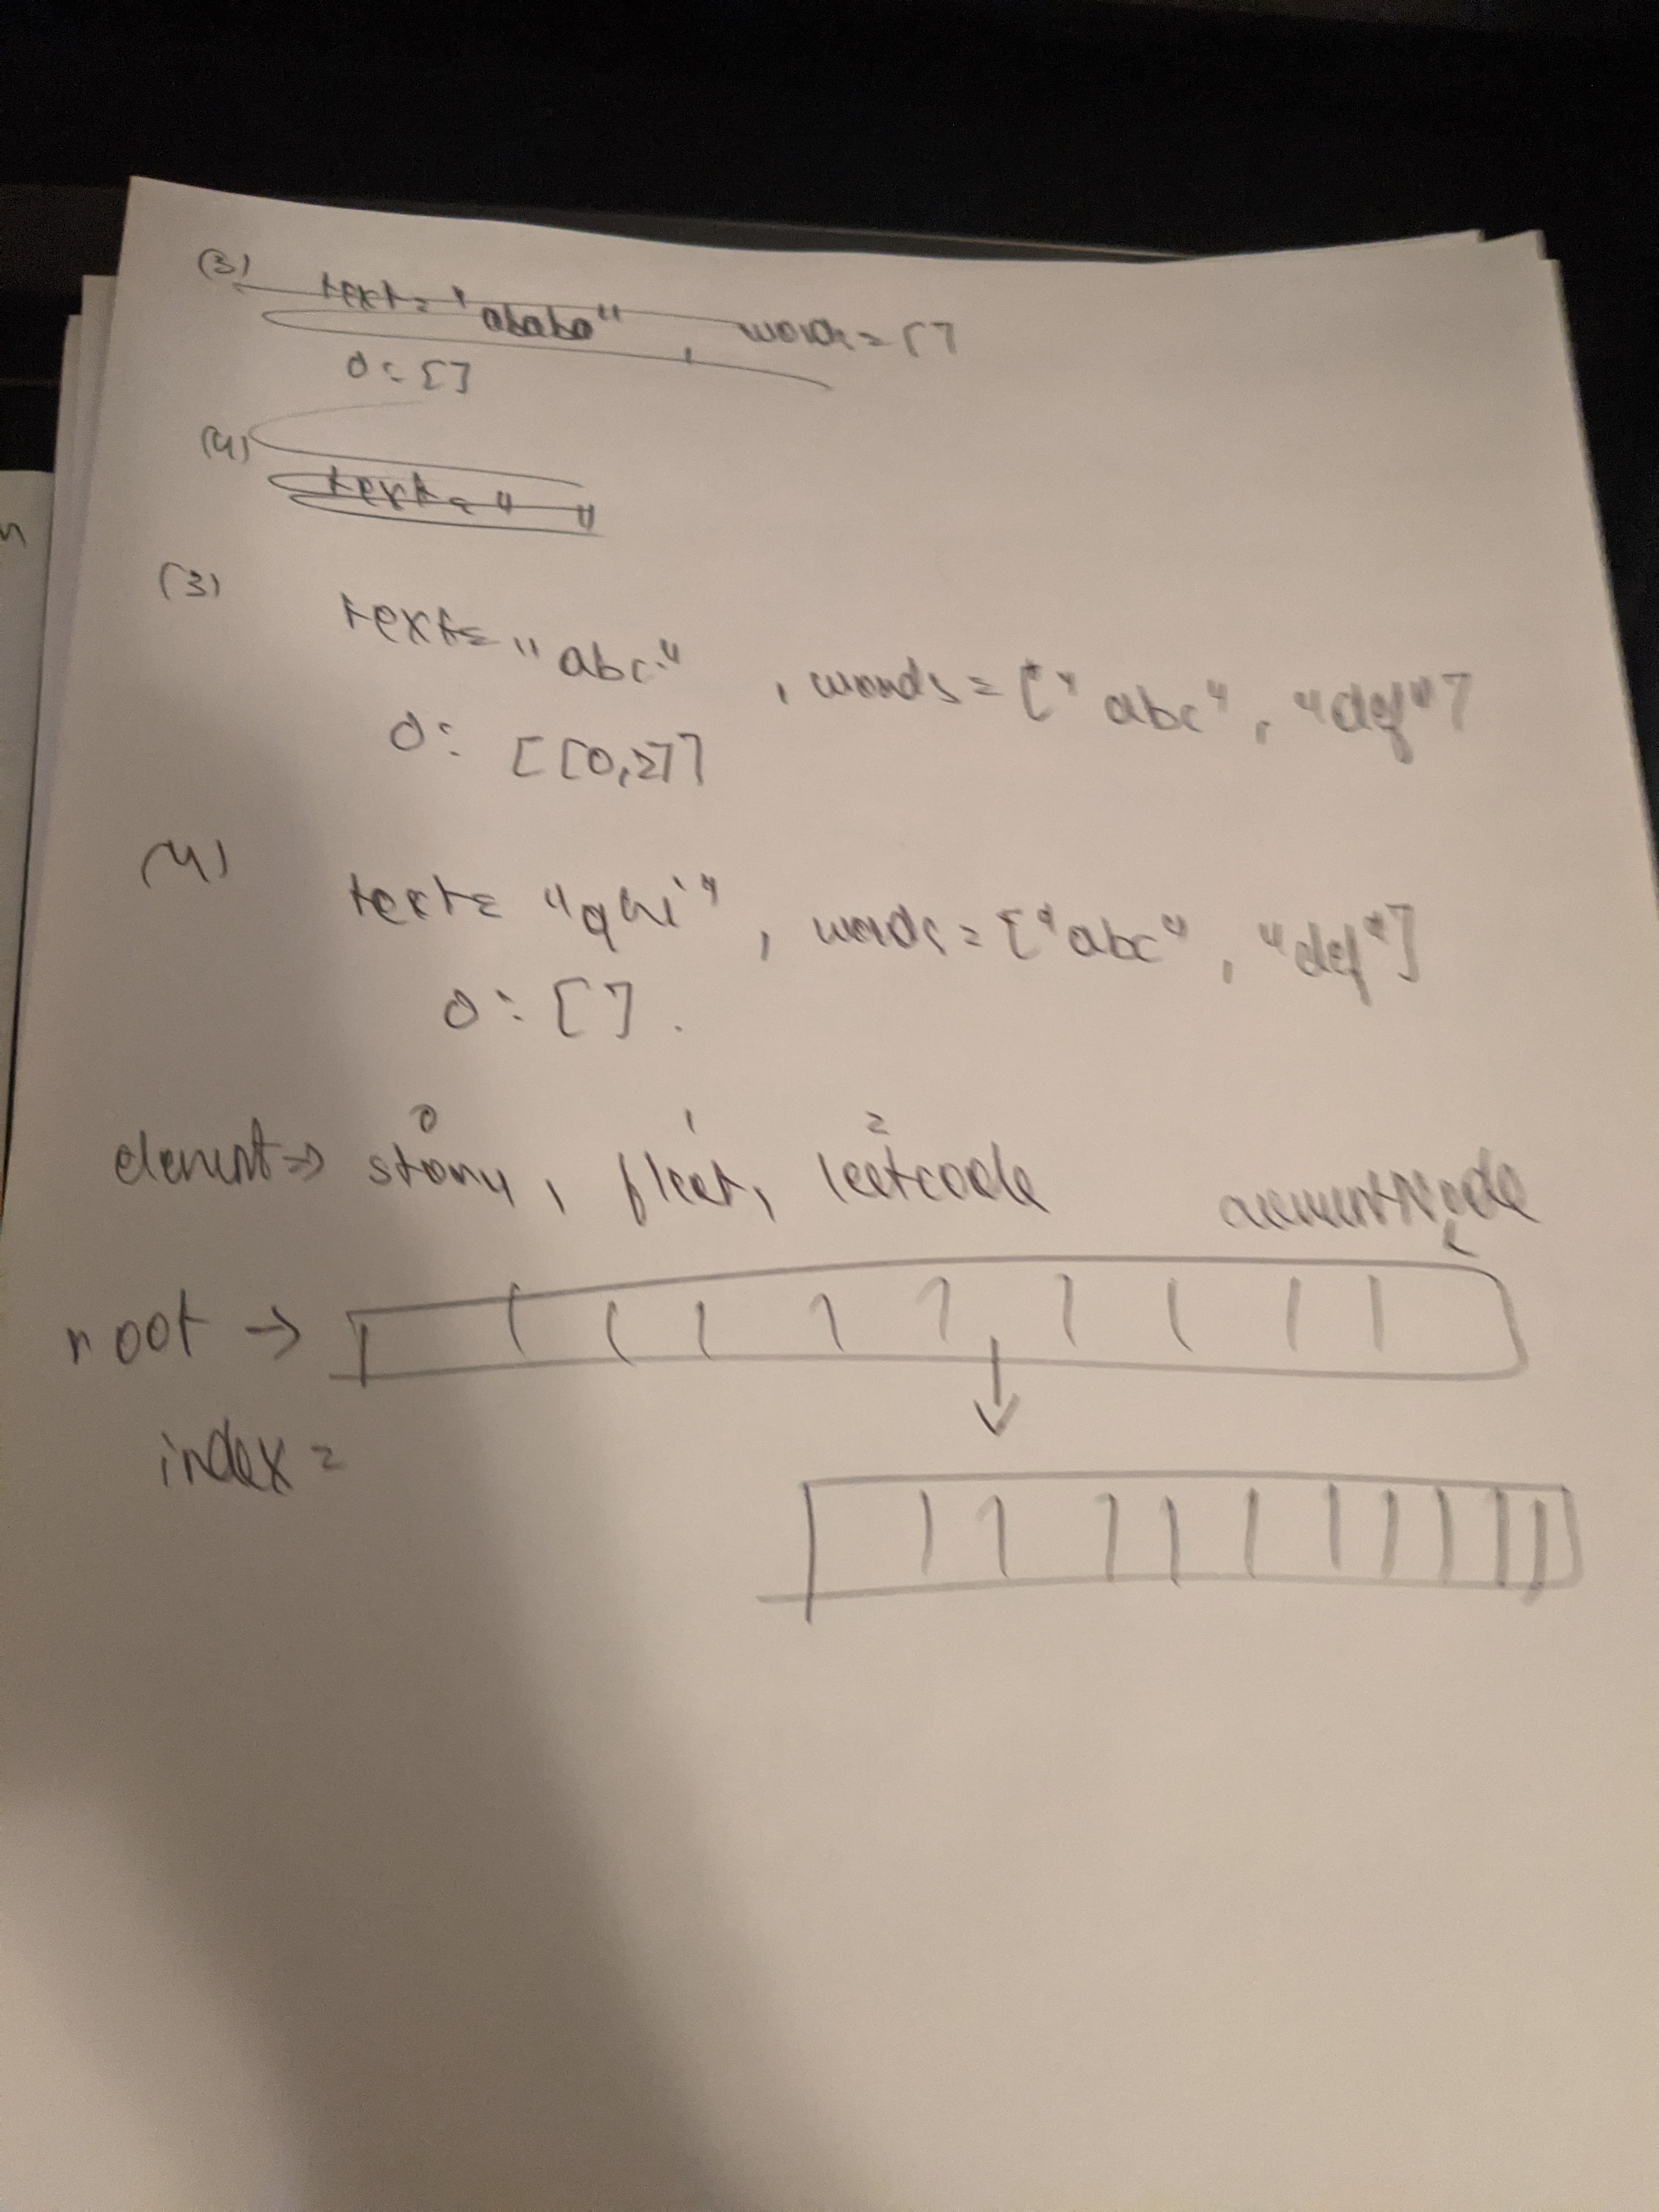 (3) text = "ababa", words = []
O: []
(4)
text = " "
(3)
text = "abc", words = ["abc", "def"]
O: [[0,2]]
(4)
text = "ghi", words = ["abc", "def"]
O: [].
0 1 2
element => story, fleet, leetcode
currentNode
root →
index =
n